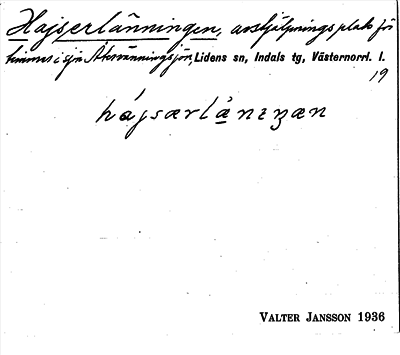 Hajserlänningen, avstjälpningsplats för
timmer i sjön Återvänningsjön, Lidens sn, Indals tg, Västernorrl. l.
19
hájsærlànıŋæn
VALTER JANSSON 1936